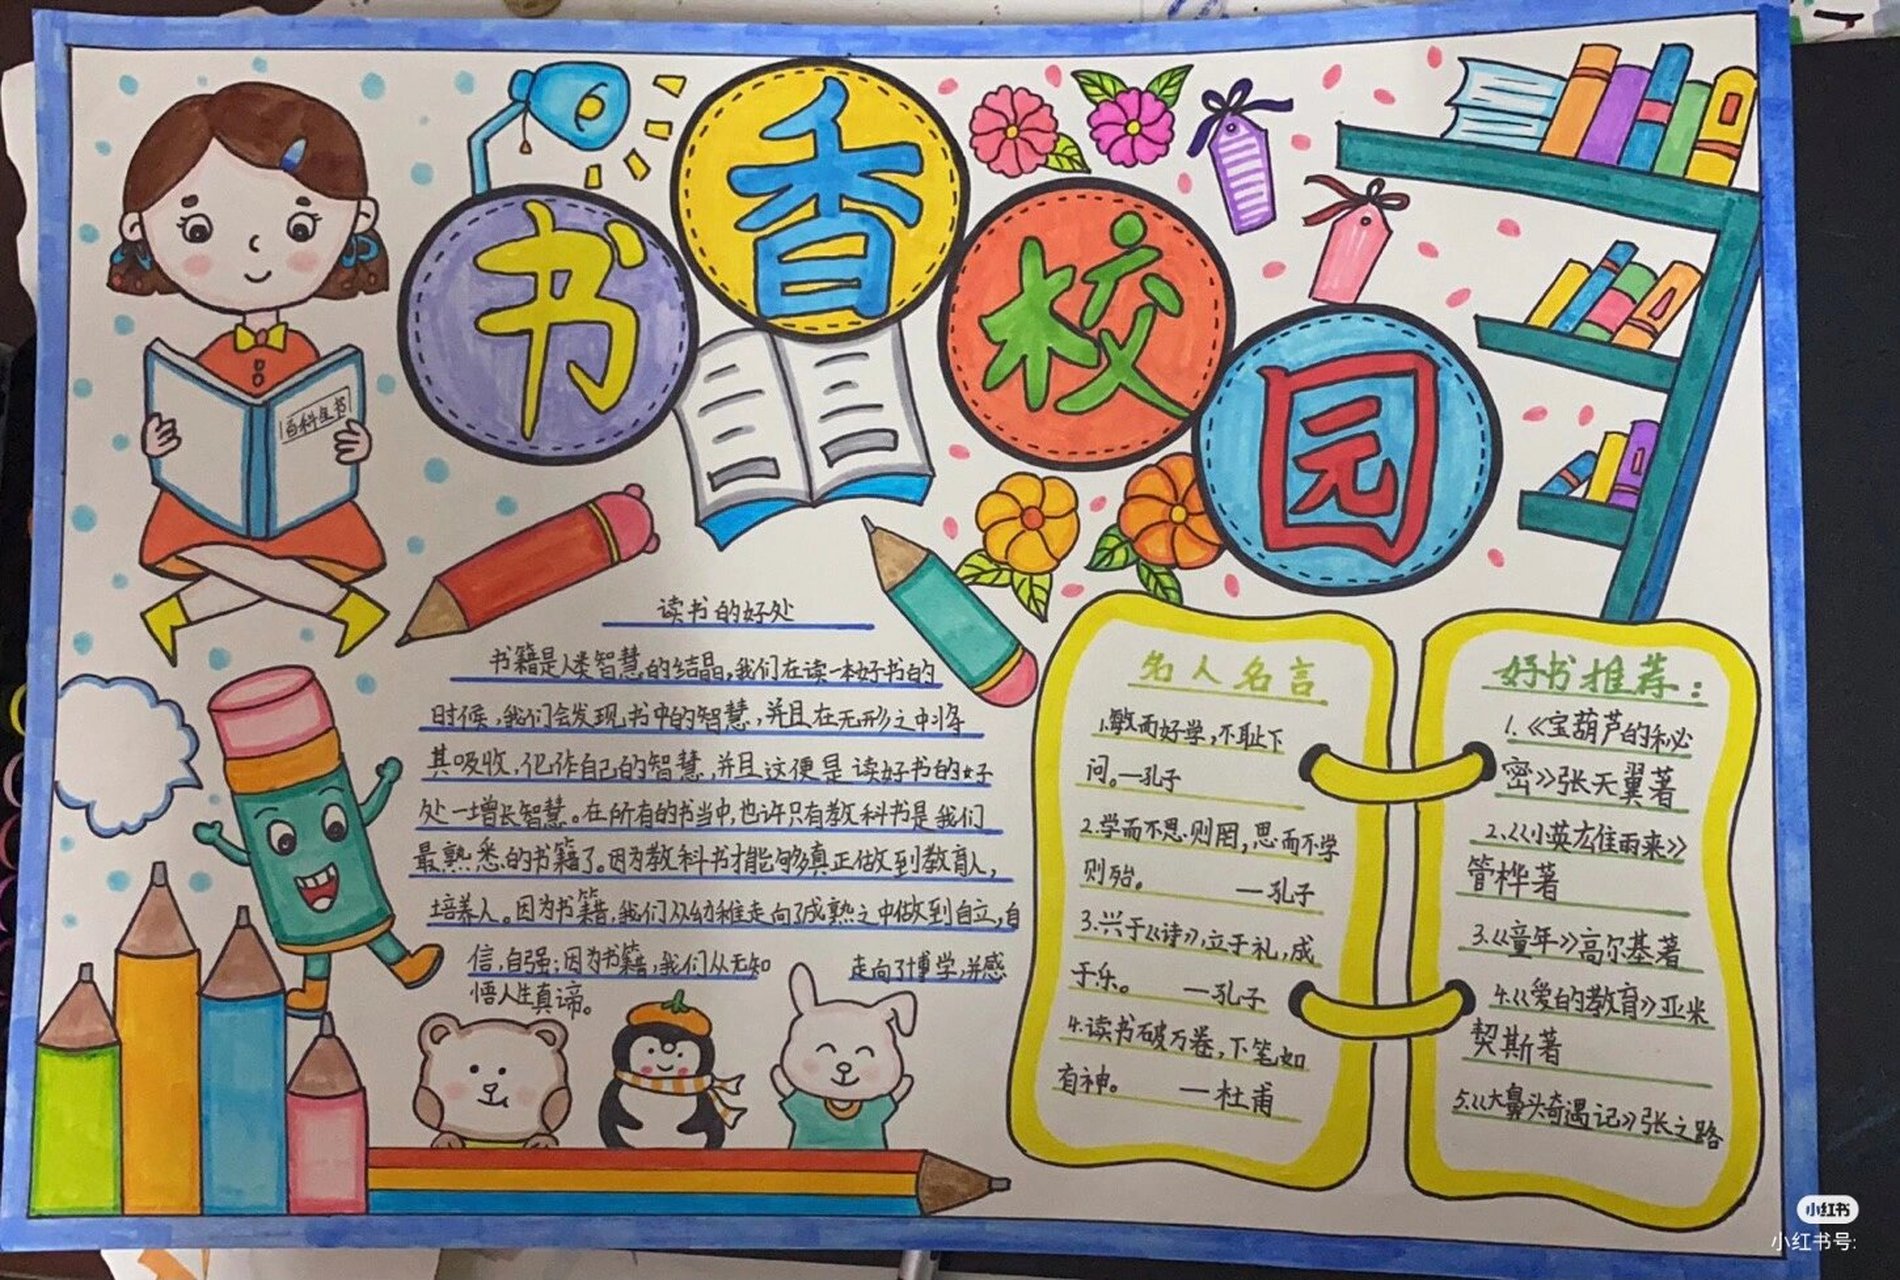 书香校园
百科全书
读书的好处
书籍是人类智慧的结晶,我们在读一本好书的
时候,我们会发现书中的智慧,并且在无形之中将
其吸收,化作自己的智慧,并且这便是读好书的好
处—增长智慧。在所有的书当中,也许只有教科书是我们
最熟悉的书籍了。因为教科书才能够真正做到教育人,
培养人。因为书籍,我们从幼稚走向了成熟之中做到自立,自
信,自强;因为书籍,我们从无知 走向了博学,并感
悟人生真谛。
名人名言
1.敏而好学,不耻下
问。—孔子
2.学而不思则罔,思而不学
则殆。 —孔子
3.兴于《诗》,立于礼,成
于乐。 —孔子
4.读书破万卷,下笔如
有神。 —杜甫
好书推荐:
1.《宝葫芦的秘
密》张天翼著
2.《小英雄雨来》
管桦著
3.《童年》高尔基著
4.《爱的教育》亚米
契斯著
5.《大鼻头奇遇记》张之路
小红书
小红书号: